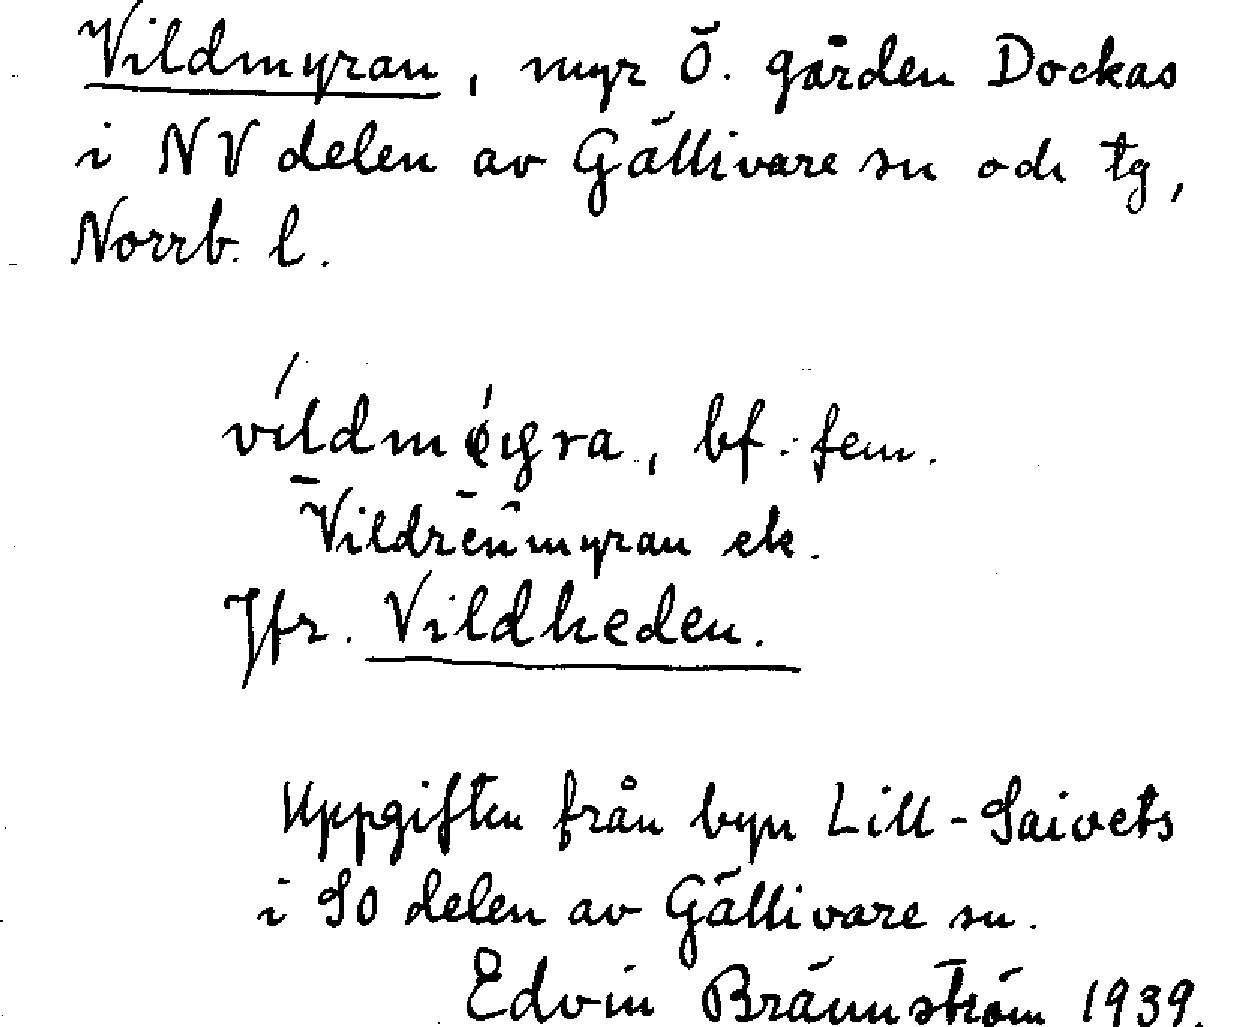 Vildmyran, myr Ö. gården Dockas
i NV delen av Gällivare sn och tg,
Norrb. l.
bf. fem.
Vildrenmyran ek.
Jfr. Vildheden.
Uppgiften från byn Lill-Saivets
i SO delen av Gällivare sn.
Edvin Brännström 1939.